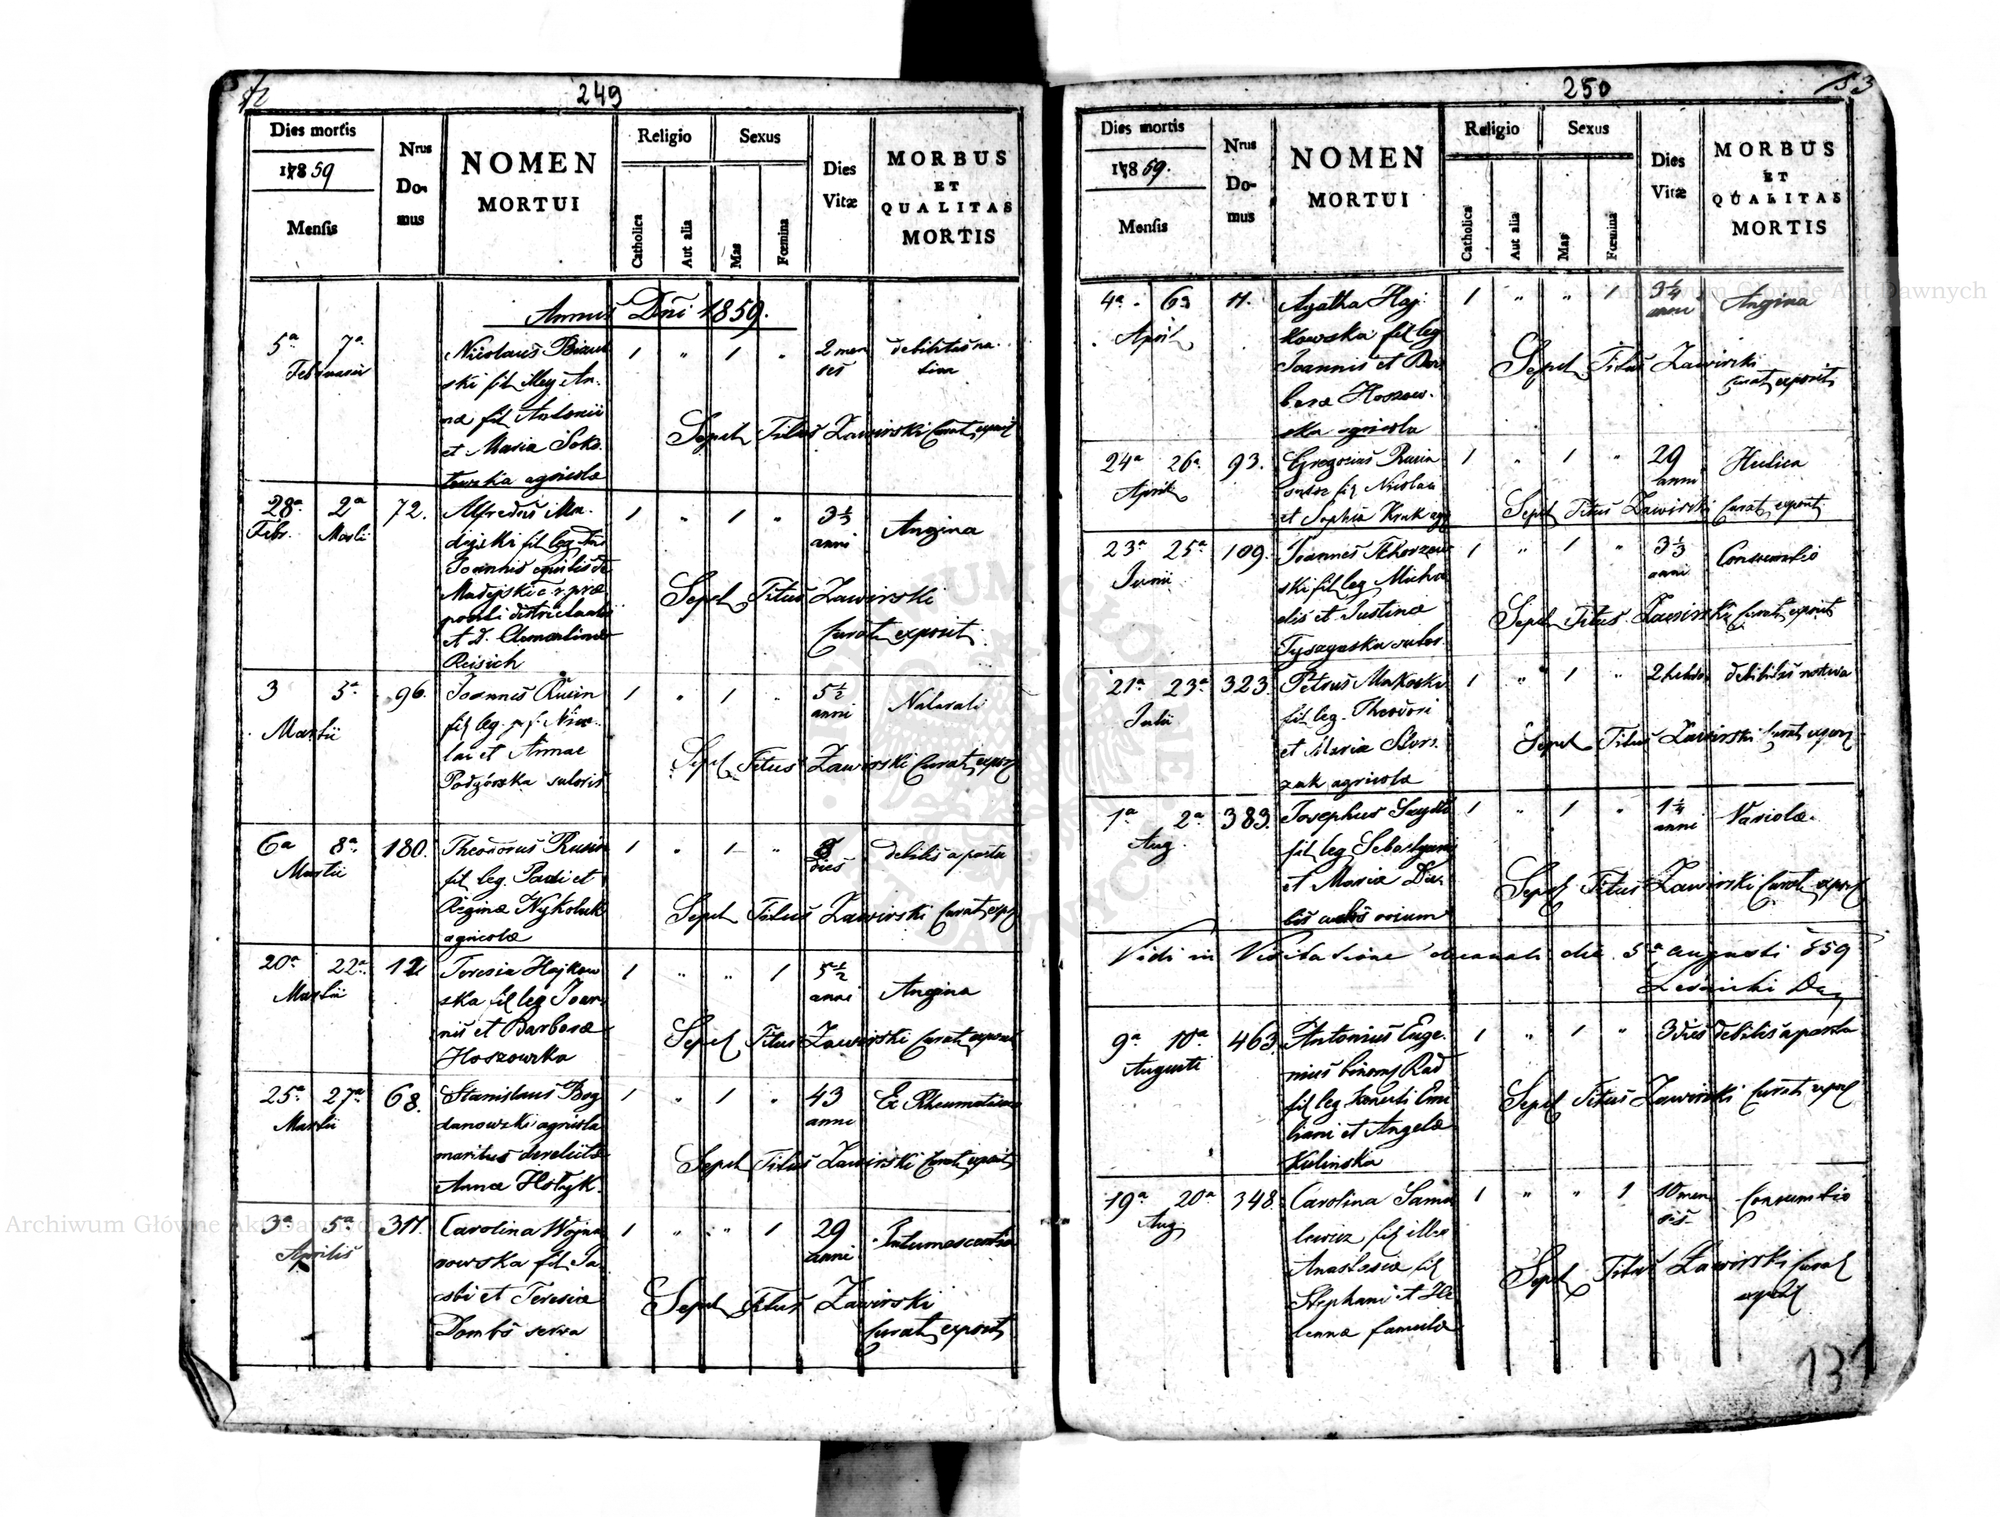 52
249
Dies mortis
1859
Mensis
Nrus
Do-
mus
NOMEN
MORTUI
Religio
Catholica
Aut alia
Sexus
Mas
Fœmina
Dies
Vitæ
MORBUS
ET
QUALITAS
MORTIS
Annus Dni 1859.
5a 7a
Februarii
Nicolaus
ski fil illeg An-
næ fil Antonii
et Maria Soko
agricolæ
1 " 1 "
2 men
ses
debilitas na-
tiva
Sepel Titus Zawirski Curat exposit
28a 2a
Febr. Martii
72.
Alfredus Ma-
dejski fil leg
Joannis equitis de
Madejski
et D. Clementinæ
Reisich
1 " 1 "
3 1/3
anni
Angina
Sepel Titus Zawirski
Curat exposit
3 5a
Martii
96.
Joannes Rusin
fil leg. Nico-
lai et Annae
Podgórska sutoris
1 " 1 "
5 1/2
anni
Naturali
Sepel Titus Zawirski Curat expos
6a 8a
Martii
180.
Theodorus Rusin
fil leg. Pauli et
Reginæ Nykoluk
agricolæ
1 " 1 "
dies
debilis a partu
Sepel Titus Zawirski Curat exp
20a 22a
Martii
12
Teresia Hajkow
ska fil leg Joan
nis et Barbaræ
Hoszowska
1 " " 1
5 1/2
anni
Angina
Sepel Titus Zawirski Curat exposit
25a 27a
Martii
68.
Stanislaus Bog
danowski agricola
maritus derelictæ
Annæ Hołyk.
1 " 1 "
43
anni
Ex Rheumatismo
Sepel Titus Zawirski Curat exposit
3a 5a
Aprilis
311.
Carolina Wojna
rowska fil Ja
cobi et Teresiæ
serva
1 " " 1
29
anni
Intumescentia
Sepel Titus Zawirski
Curat exposit
250
53
Dies mortis
1859.
Mensis
Nrus
Do-
mus
NOMEN
MORTUI
Religio
Catholica
Aut alia
Sexus
Mas
Fœmina
Dies
Vitæ
MORBUS
ET
QUALITAS
MORTIS
4a 6a
April
11.
Agatha Haj
kowska fil leg
Joannis et Bar
baræ Hoszow-
ska agricola
1 " " 1
3 1/4
anni
Angina
Sepel Titus Zawirski
Curat exposit
24a 26a
Aprilis
93.
Gregorius Rusin
fil Nicolai
et Sophia Kruk agr
1 " 1 "
29
anni
Sepel Titus Zawirski Curat exposit
23a 25a
Junii
109.
Joannes
ski fil leg Micha
elis et Justinæ
sutor.
1 " 1 "
3 1/3
anni
Consumtio
Sepel Titus Zawirski Curat exposit
21a 23a
Julii
323.
Petrus
fil leg. Theodori
et Maria
zak agricolæ
1 " 1 "
2 hebdo
debilitas nativa
Sepel Titus Zawirski Curat expos
1a 2a
Aug
383.
Josephus
fil leg Sebastyani
et Maria
1 " 1 "
1 1/4
anni
Variolæ.
Sepel Titus Zawirski Curat expos
Vidi in Visitatione decanali die 5a augusti 859
Leśnicki Dec
9a 10a
Augusti
463.
Antonius Euge-
nius binoms Rad
fil leg Emi
liani et Angelæ
Kulinska
1 " 1 "
3 dies
debilis a partu
Sepel Titus Zawirski Curat expos
19a 20a
Aug
348.
Carolina Samu
lewicz fil illeg
Anastasiæ fil
Stephani et He
lenna famulæ
1 " " 1
10 men
sis
Consumtio
Sepel Titus Zawirski Curat
exposit
131
Archiwum Główne Akt Dawnych
Archiwum Główne Akt Dawnych